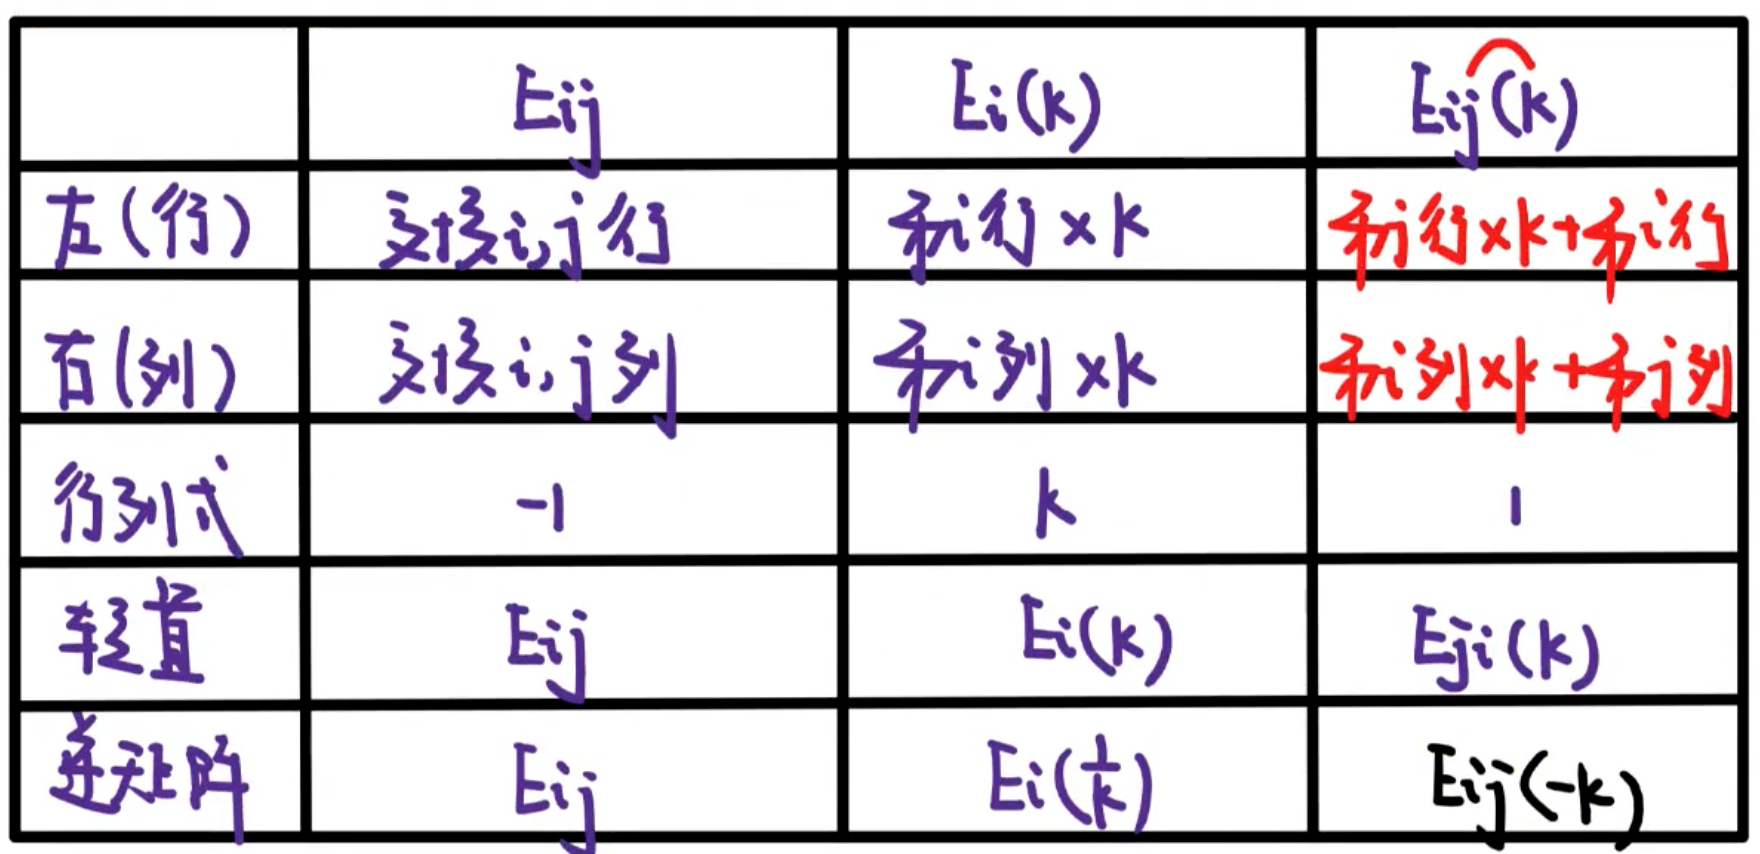 Eij Ei(k) Eij(k)
左(行) 交换i,j行 第i行×k 第j行×k+第i行
右(列) 交换i,j列 第i列×k 第i列×k+第j列
行列式 -1 k 1
转置 Eij Ei(k) Eji(k)
逆矩阵 Eij Ei(1/k) Eij(-k)